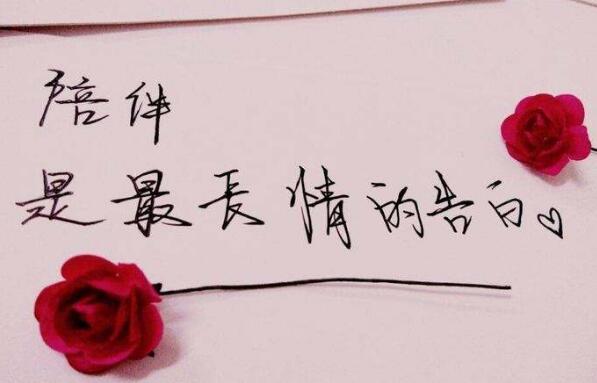 陪伴
是最长情的告白♡